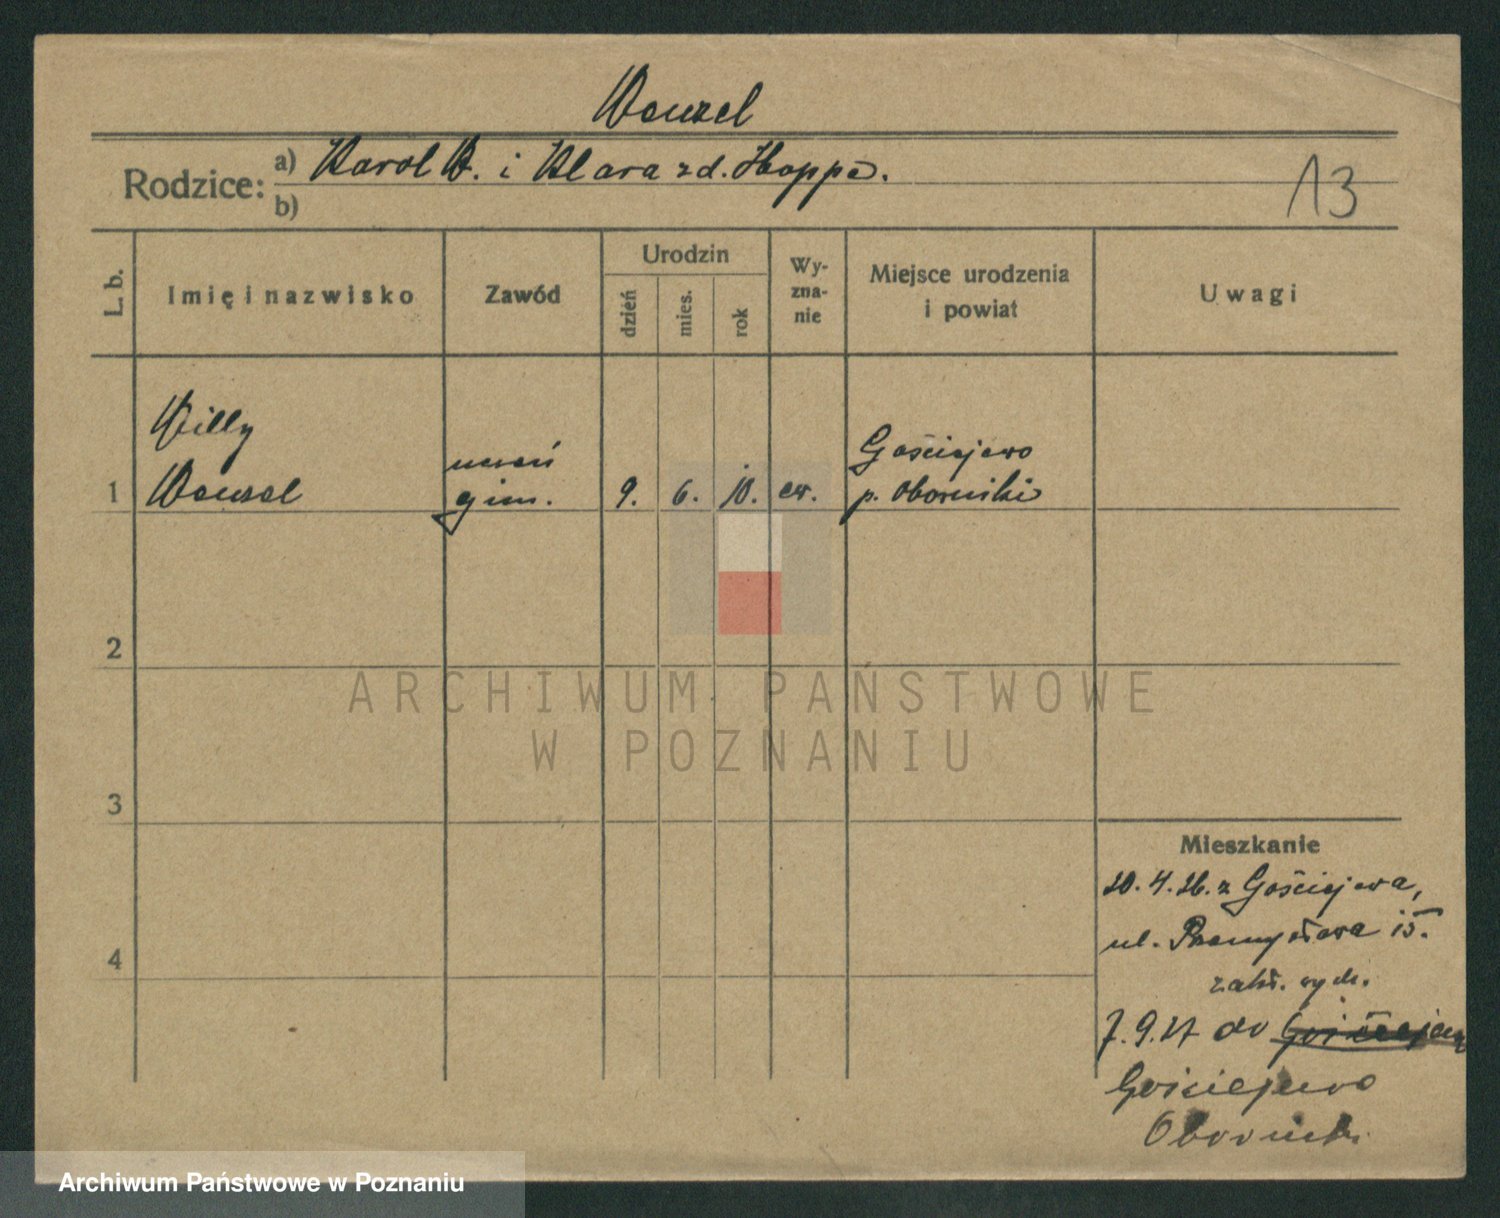 Wenzel
Rodzice: a) Karol W. i Klara zd. Hoppe.
b)
13
L. b.
Imię i nazwisko
Zawód
Urodzin
dzień
mies.
rok
Wy-
zna-
nie
Miejsce urodzenia
i powiat
Uwagi
Willy
Wenzel
uczeń
gim.
1
9.
6.
10.
ew.
Gościejewo
p. Oborniki
2
3
4
Mieszkanie
20. 4. 26. z Gościejewa,
ul. Przemysłowa 15.
7. 9. 27 do
Gościejewo
Oborniki
ARCHIWUM PAŃSTWOWE
W POZNANIU
Archiwum Państwowe w Poznaniu